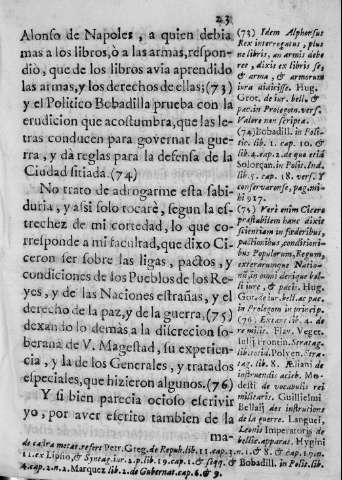 23
Alonso de Napoles, a quien debia
mas a los libros, ò a las armas, respon-
diò, que de los libros avia aprendido
las armas, y los derechos de ellas; (73)
y el Politico Bobadilla prueba con la
erudicion que acostumbra, que las le-
tras conducen para governar la gue-
rra, y dà reglas para la defensa de la
Ciudad sitiada. (74)
No trato de adrogarme esta sabi-
duria, y assi solo tocarè, segun la es-
trechez de mi cortedad, lo que co-
rresponde a mi facultad, que dixo Ci-
ceron ser sobre las ligas, pactos, y
condiciones de los Pueblos de los Re-
yes, y de las Naciones estrañas, y el
derecho de la paz, y de la guerra, (75)
dexando lo demàs a la discrecion so-
berana de V. Magestad, su experien-
cia, y la de los Generales, y tratados
especiales, que hizieron algunos. (76)
Y si bien parecia ocioso escrivir
yo, por aver escrito tambien de la
ma-
(73) Idem Alphonsus
Rex interrogatus, plus
ne libris, an armis debe
ret, dixit ex libris se,
& arma, & armorum
iura didicisse. Hug.
Grot. de iur. bell. &
pac. in Prolegom. vers.
Valere non scripta.
(74) Bobadill. in Poli-
tic. lib. 1. cap. 10. &
lib. 4. cap. 2. de quo etiā
Solorçan. in Polit. Ind.
lib. 5. cap. 18. vers. Y
conservaronse, pag. mi-
hi 917.
(75) Verè enim Cicero
præstabilem hanc dixit
scientiam in fœderibus,
pactionibus, conditioni-
bus Populorum, Regum,
exterarumque Natio-
nū, in omni denique bel-
li iure, & pacis. Hug.
Got. de iur. bell. ac pac.
in Prolegom in princip.
(76) Extat lib. 4. de
re milit. Flav. Veget.
Iulij Frontin. Stratag.
lib. Polyen. Stra-
tag. lib. 8. Æliani de
instruendis acieb. Mo-
desti de vocabulis rei
militaris. Guillielmi
Bellaij de instructione
de la guerre. Languei,
Leonis Imperatoris de
bellic. apparat. Hygini
de castra metat. refert Petr. Greg. de Repub. lib. 11. cap. 2. n. 1. & 8. & cap.
11. ex Lipsio, & Syntag. iur. 2. p. lib. 19. cap. 1. & seqq. & Bobadill. in Polit. lib.
4. cap. 2. n. 2. Marquez lib. 2. de Gubernat. cap. 6. & 9.